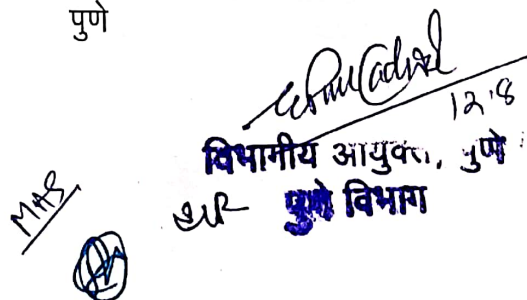 पुणे
12.8
विभागीय आयुक्त, पुणे
पुणे विभाग
MAS